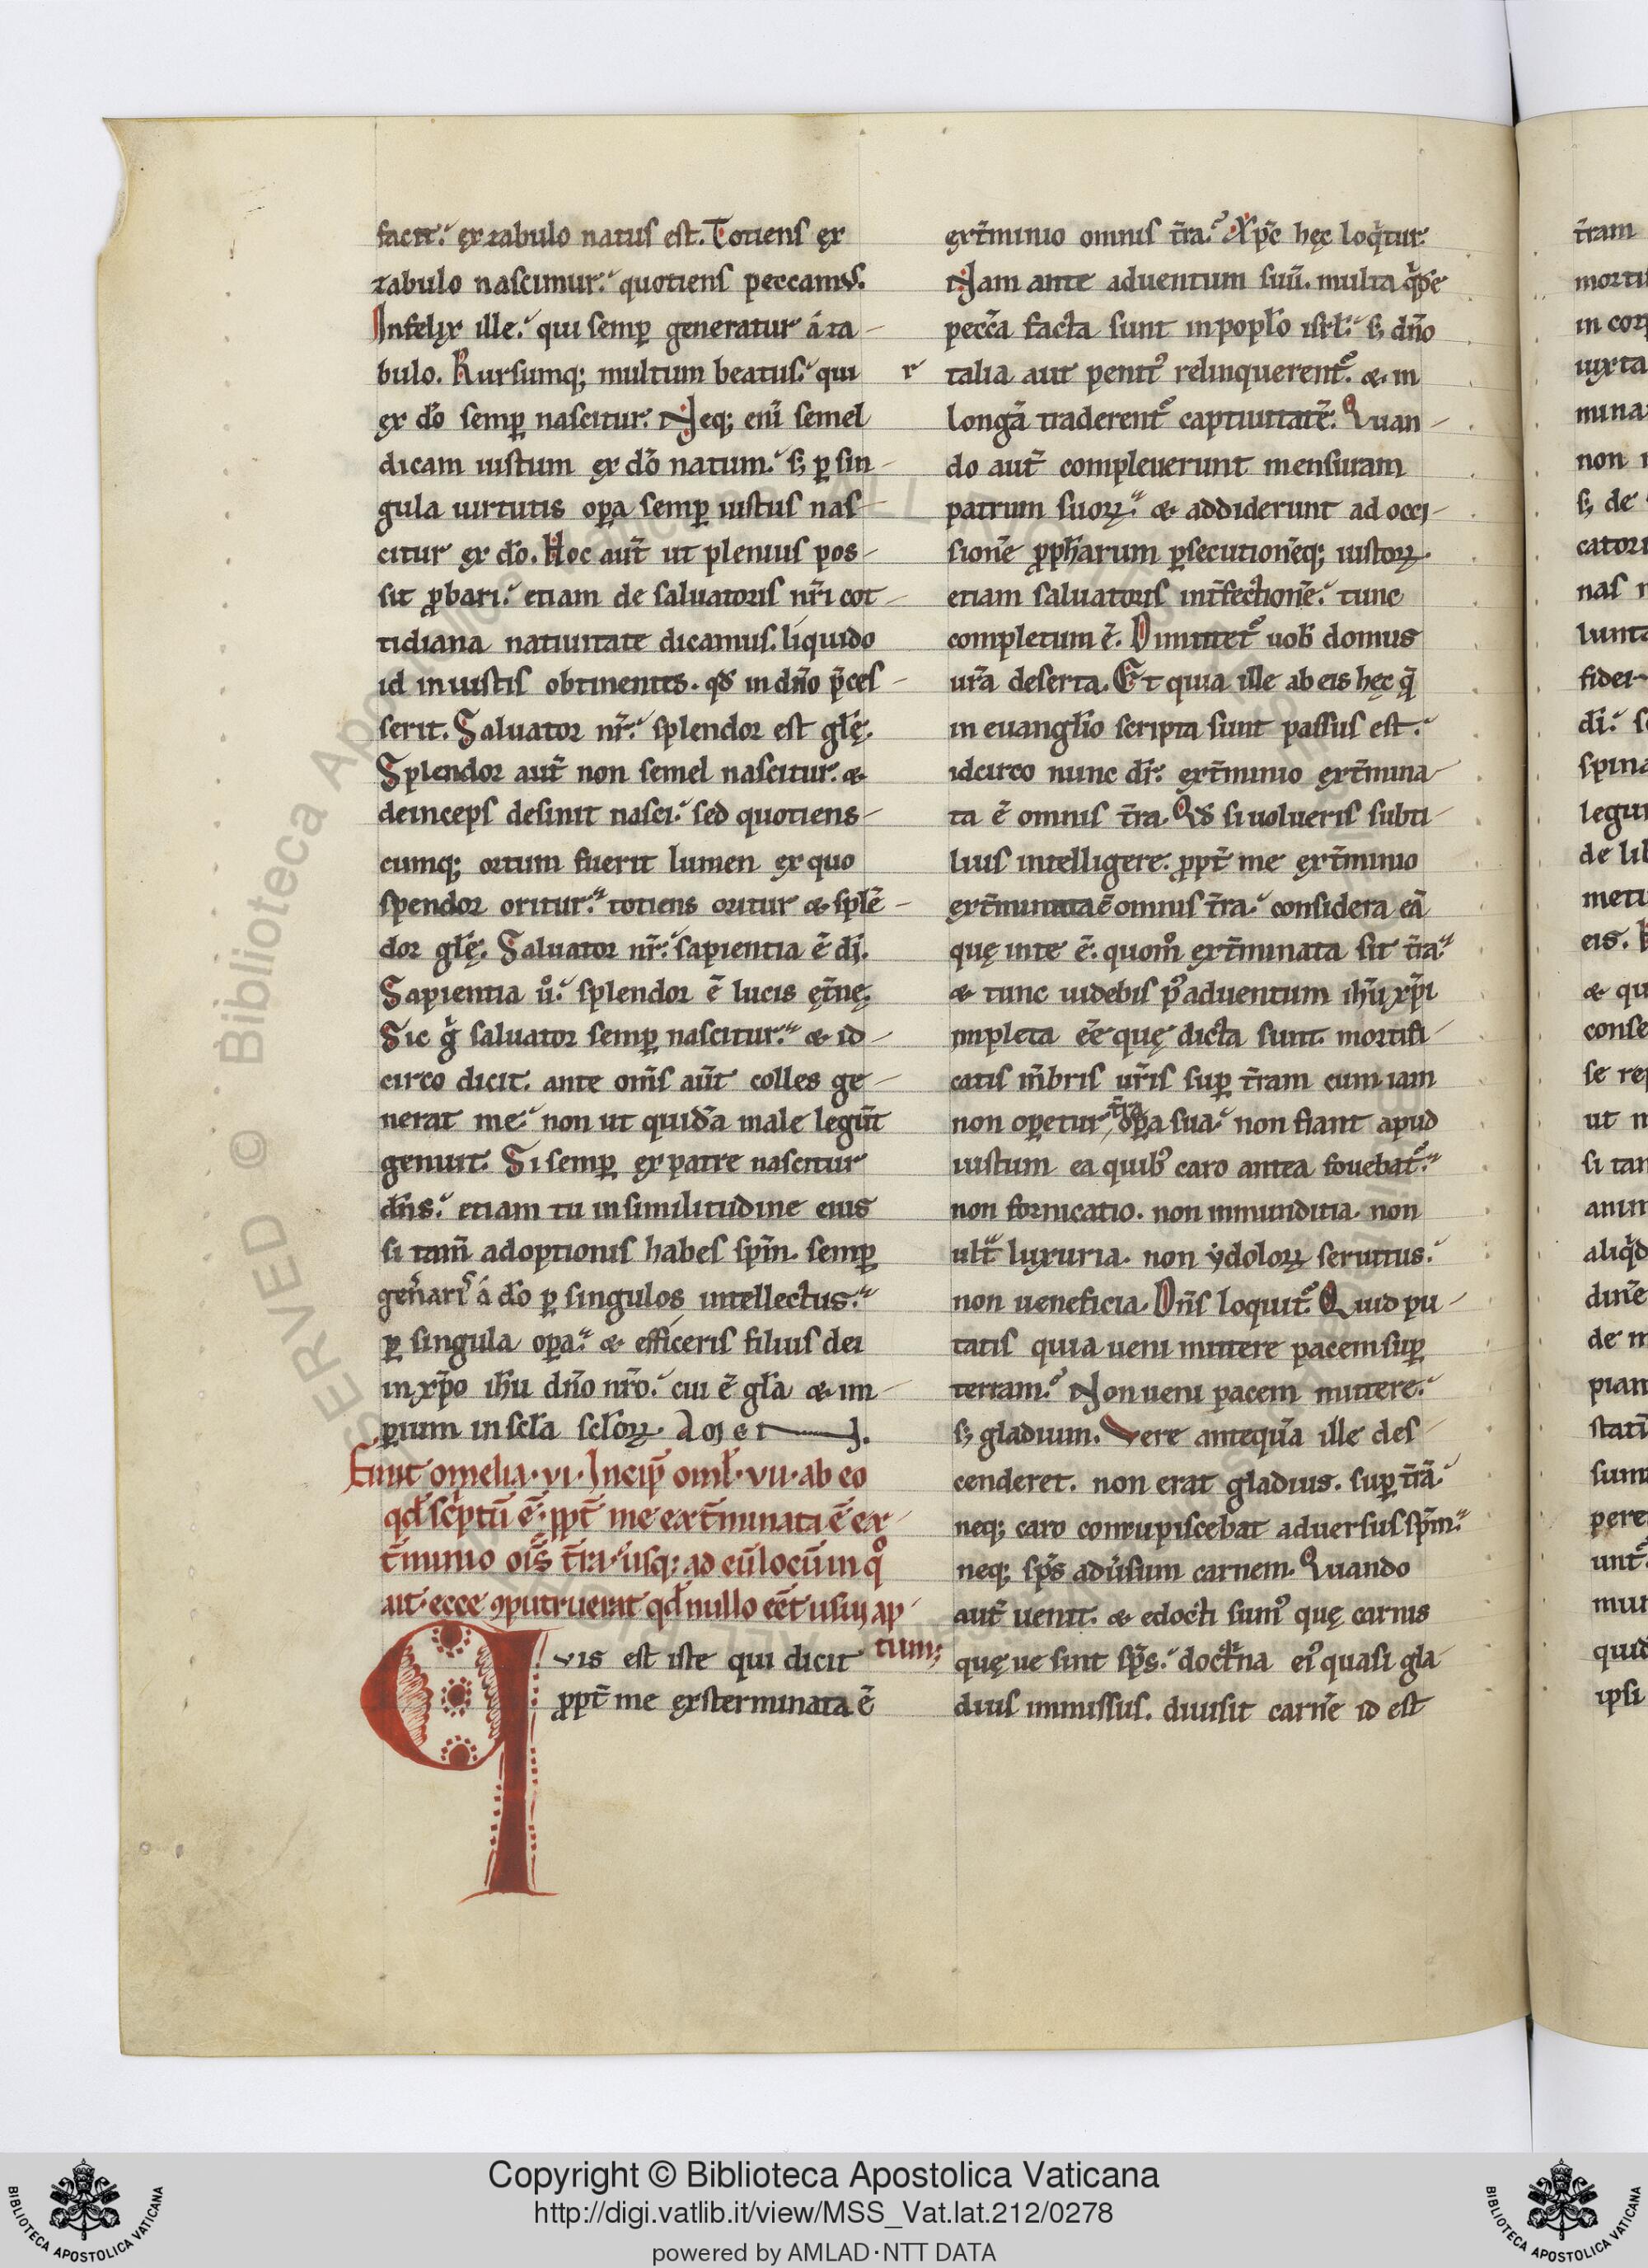 facit. ęx zabulo natus est. Totiens ęx
zabulo nascimur. quotiens peccamus.
Infelix ille. qui semꝑ generatur á za-
bulo. Rursumq; multum beatus. qui
ęx dō semꝑ nascitur. Neq; eni̅ semel
dicam iustum ex dō natum. s; ꝑ sin-
gula uirtutis oꝑa semꝑ iustus nas-
citur ex dō. Hoc aut̅ ut plenius pos-
sit ꝓbari. etiam de saluatoris nr̅i cot-
tidiana natiuitate dicamus. liquido
id in iustis obtinentes. qd̅ in dn̅o p̅ces-
serit. Saluator nr̅. splendor est gl̅ę.
Splendor aut̅ non semel nascitur. &
deinceps desinit nasci. sed quotiens-
cumq; ortum fuerit lumen ex quo
spendor oritur. totiens oritur & splē-
dor gl̅ę. Saluator nr̅. sapientia ē di̅.
Sapientia ů. splendor ē lucis ęt̅nę.
Sic g̊ saluator semꝑ nascitur. & id-
circo dicit. ante om̅s aut̅ colles ge-
nerat me. non ut quida̅ male legūt
genuit. Si semꝑ ex patre nascitur
dn̅s. etiam tu in similitudine eius
si tam̅ adoptionis habes spm̅. semꝑ
gen̅aris á dō ꝑ singulos intellectus.
ꝑ singula oꝑa. & efficeris filius dei
in xp̅o ih̅u dn̅o nr̅o. cui ē gl̅a & im-
ꝑium in scl̅a scl̅oꝝ. Amen.
Finit omelia. vi. Incip̅ oml̅. vii. ab eo
qd̅ sc̅ptū ē. ꝓpt̅ me ext̅minata ē ex-
t̅minio oi̅s t̅ra. usq; ad eū locum in qͦ
ait. ecce ꝯputruerat qd̅ nullo eēt usui ap-
tum;
Qvis est iste qui dicit
ꝓpt̅ me exsterminata ē
ext̅minio omnis t̅ra. Xp̅c hęc loqͥtur.
Nam ante aduentum suū. multa qͥde
pecc̅a facta sunt in poplo̅ isrl̅. s; dn̅o
r talia aut penitꝰ relinquerent̃. & in
longā traderent̃ captiuitatē. Quan-
do aut̅ compleuerunt mensuram
patrum suoꝝ. & addiderunt ad occi-
sionē ꝓph̅arum ꝑsecutionēq; iustoꝝ.
etiam saluatoris int̅fectionē. tunc
completum ē. Dimittet̃ uob̅ domus
ur̅a deserta. Et quia ille ab eis hęc q̅
in euangl̅io scripta sunt passus est.
idcirco nunc di̅. ext̅minio ext̅mina-
ta ē omnis t̅ra. Qd̅ si uolueris subti-
lius intelligere. ꝓpt̅ me ext̅minio
ext̅minata ē omnis t̅ra. considera eā
quę in te ē. quom̊ ext̅minata sit t̅ra.
& tunc uidebis pꝰ aduentum ih̅u xp̅i
impleta eē quę dicta sunt. mortifi-
catis m̅bris ur̅is suꝑ t̅ram cum iam
non oꝑetur t̅ra oꝑa sua. non fiant apud
iustum ea quibꝰ caro antea fouebat̃.
non fornicatio. non inmunditia. non
ult̅ luxuria. non ydoloꝝ seruitus.
non ueneficia. Dn̅s loquit̃. Quid pu-
tatis quia ueni mittere pacem suꝑ
terram. Non ueni pacem mittere.
s; gladium. Vere antequa̅ ille des-
cenderet. non erat gladius. suꝑ t̅rā.
neq; caro concupiscebat aduersus spm̅.
neq; sp̅s adu̅sum carnem. Quando
aut̅ uenit. & edocti sumꝰ quę carnis
quę ue sint sp̅s. doctͥna eiꝰ quasi gla-
dius immissus. diuisit carnē id est
Copyright © Biblioteca Apostolica Vaticana
http://digi.vatlib.it/view/MSS_Vat.lat.212/0278
powered by AMLAD·NTT DATA